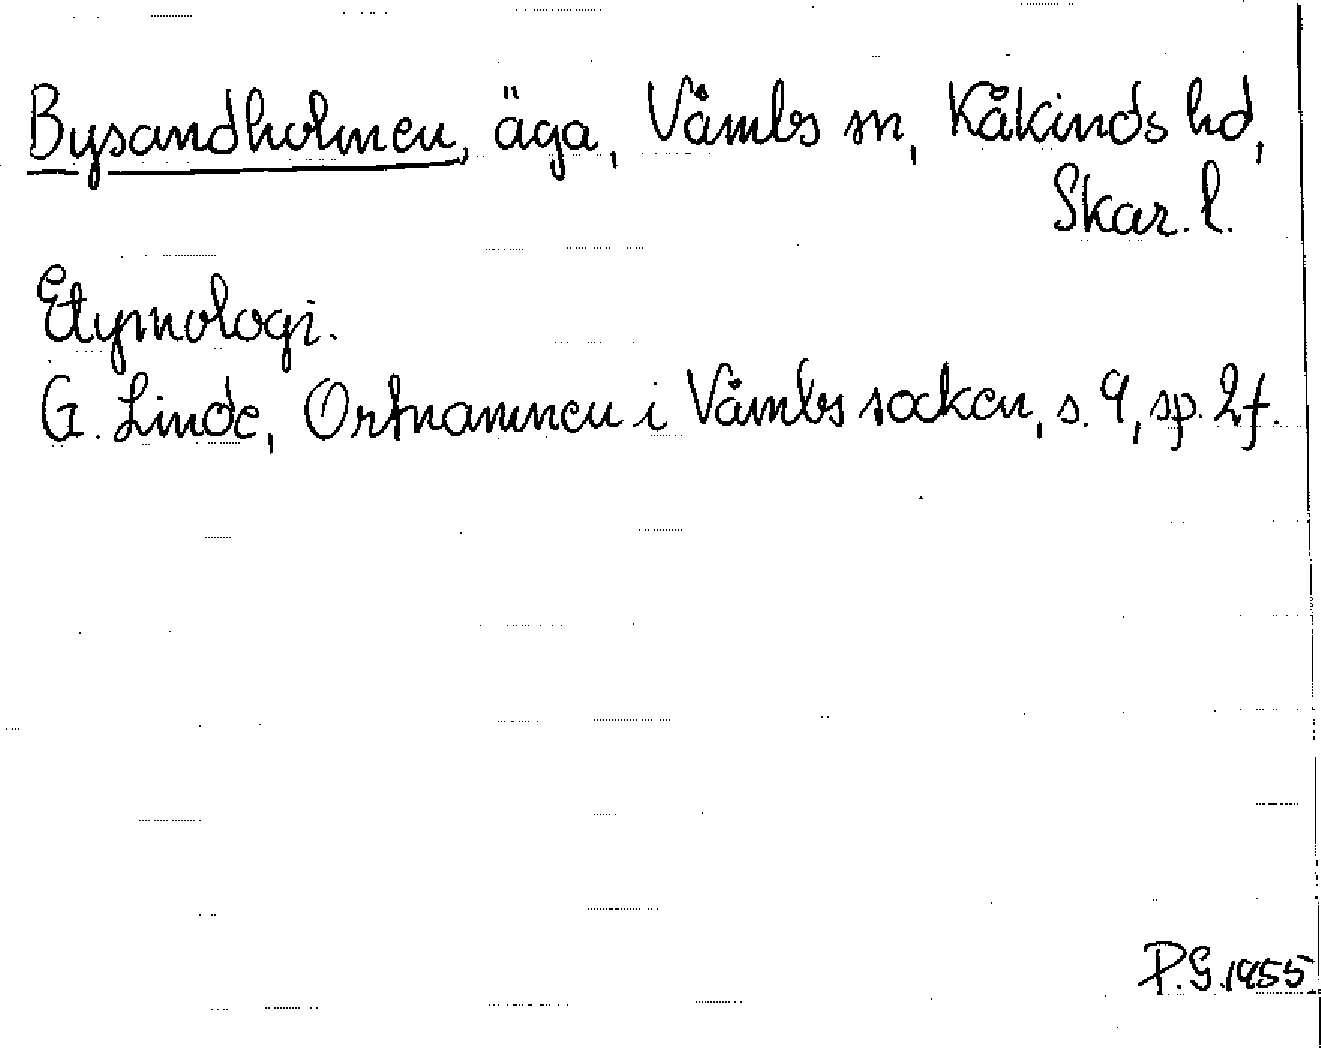 Bysandholmen, äga, Våmbs sn, Kåkinds hd,
Skar. l.
Etymologi.
G. Linde, Ortnamnen i Våmbs socken, s. 9, sp. 2 f.
P.G. 1955